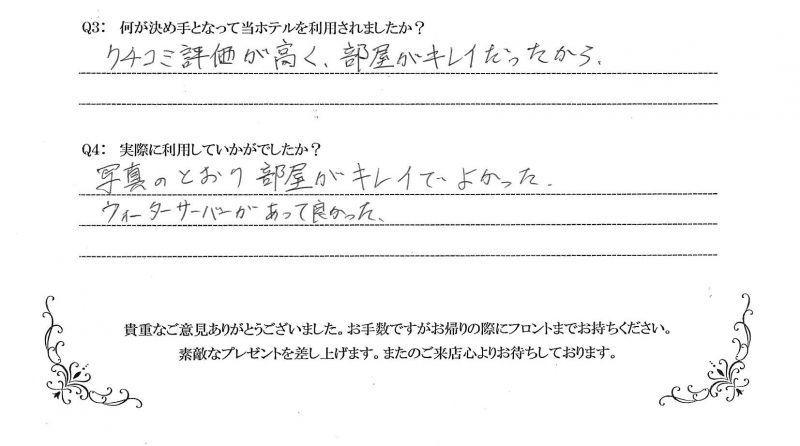 Q3： 何が決め手となって当ホテルを利用されましたか？
クチコミ評価が高く、部屋がキレイだったから、
Q4： 実際に利用していかがでしたか？
写真のとおり部屋がキレイでよかった.
ウォーターサーバーがあって良かった、
貴重なご意見ありがとうございました。お手数ですがお帰りの際にフロントまでお持ちください。
素敵なプレゼントを差し上げます。またのご来店心よりお待ちしております。